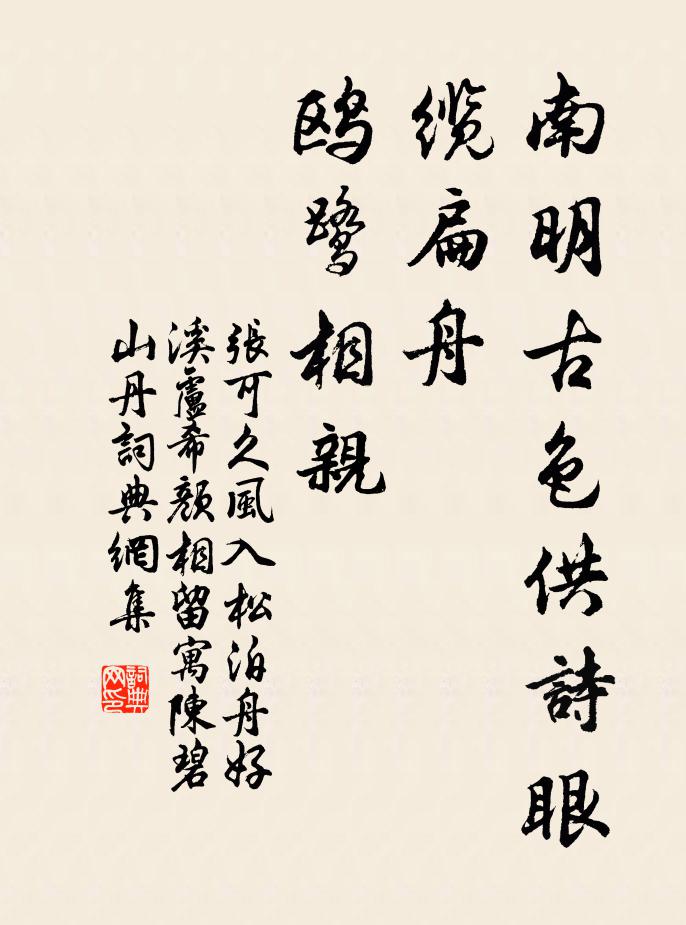 南明古色供詩眼
缆扁舟
鸥鹭相親
張可久風入松泊舟好
溪盧希颜相留寓陳碧
山丹詞典網集
詞典
网印